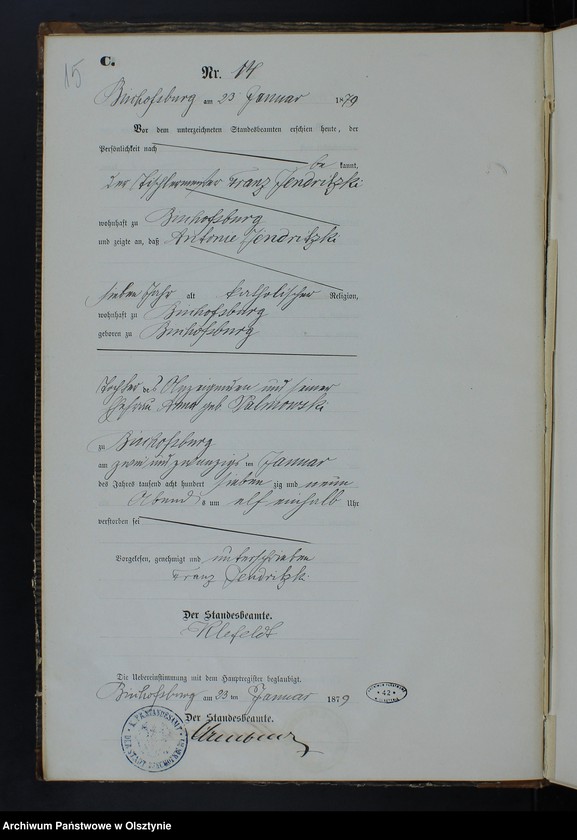 15
C.
Nr. 14
Bischofsburg am 23 Januar 1879
Vor dem unterzeichneten Standesbeamten erschien heute, der
Persönlichkeit nach
be kannt,
der Tischlermeister Franz Jendritzki
wohnhaft zu Bischofsburg
und zeigte an, daß Antonie Jendritzki
sieben Jahr alt katholischer Religion,
wohnhaft zu Bischofsburg
geboren zu Bischofsburg
Tochter des Anzeigenden und seiner
Ehefrau Anna geb Palmowski
zu Bischofsburg
am zwei und zwanzigs ten Januar
des Jahres tausend acht hundert sieben zig und neun
Abend s um elf einhalb Uhr
verstorben sei
Vorgelesen, genehmigt und unterschrieben
Franz Jendritzki
Der Standesbeamte.
Klefeldt
Die Uebereinstimmung mit dem Hauptregister beglaubigt.
Bischofsburg am 23 ten Januar 1879
Der Standesbeamte.
42
Archiwum Państwowe w Olsztynie